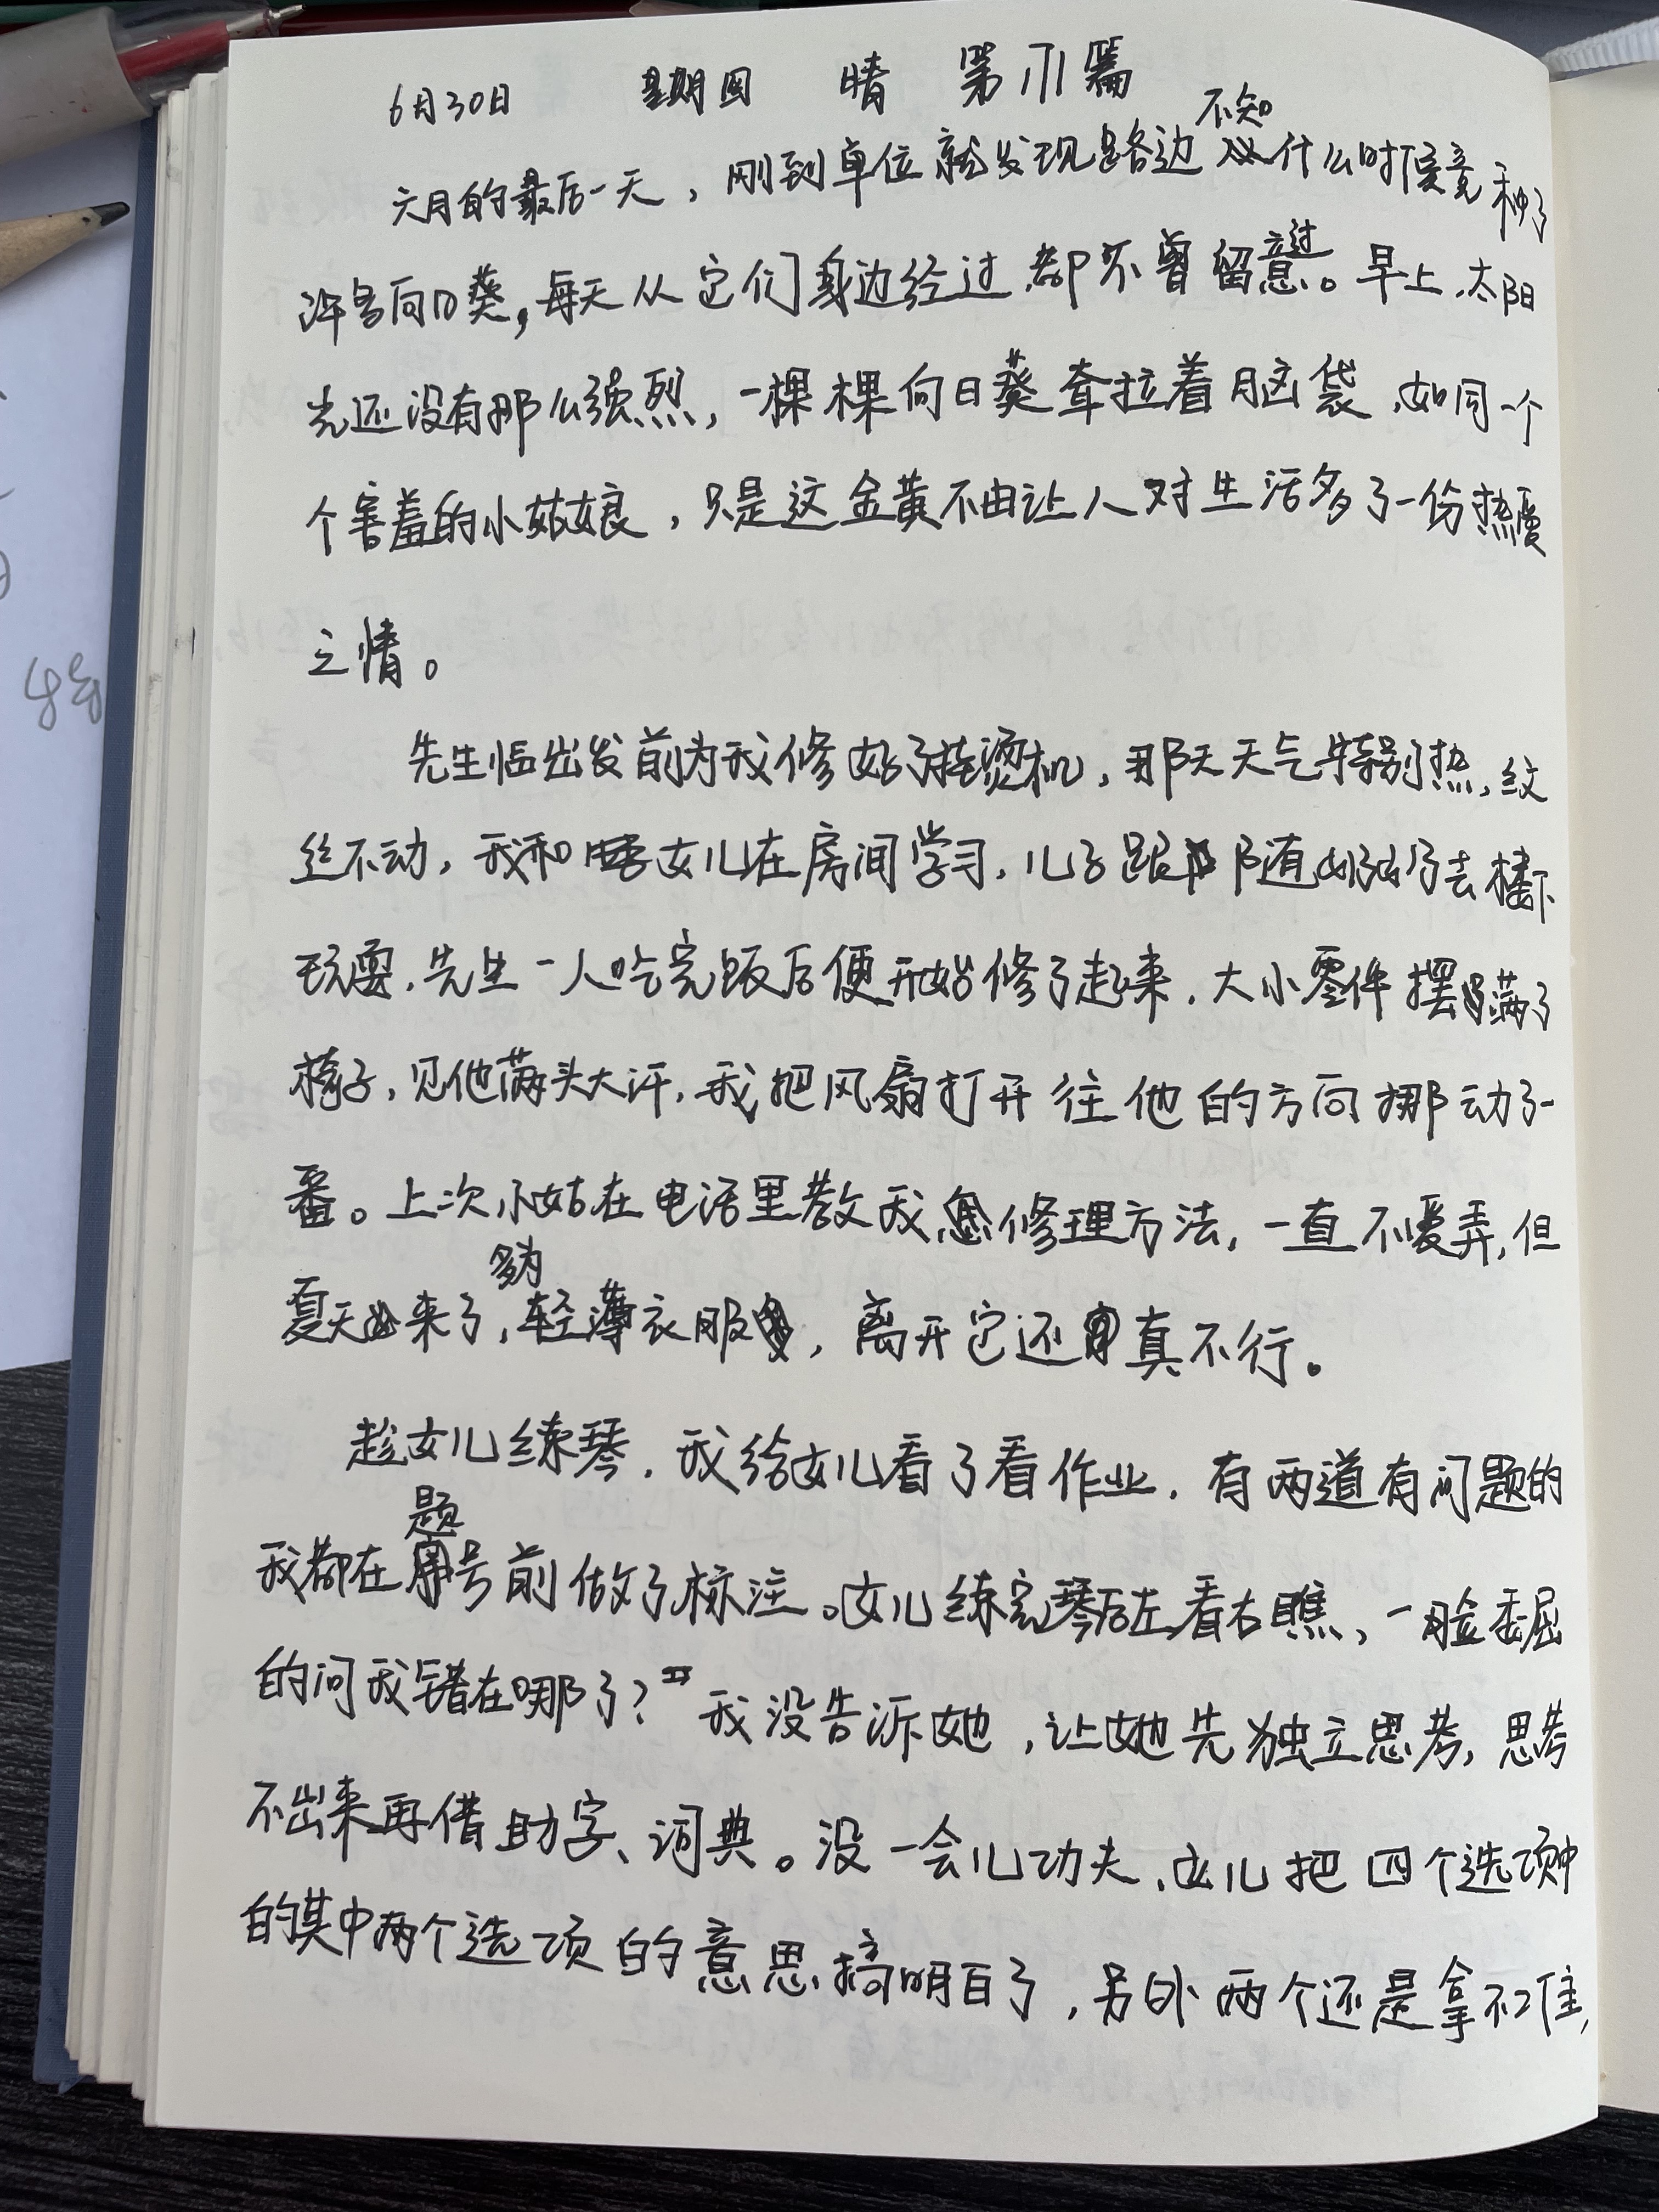 6月30日 星期四 晴 第171篇
六月的最后一天，刚到单位就发现路边不知什么时候竟种了
许多向日葵，每天从它们身边经过都不曾留意过。早上，太阳
光还没有那么强烈，一棵棵向日葵耷拉着脑袋，如同一个
个害羞的小姑娘，只是这金黄不由让人对生活多了一份热爱
之情。
先生临出发前为我修好了挂烫机，那天天气特别热，纹
丝不动，我和女儿在房间学习，儿子跟随奶奶去楼下
玩耍，先生一人吃完饭后便开始修了起来，大小零件摆满了
椅子，见他满头大汗，我把风扇打开往他的方向挪动了一
番。上次小姑在电话里教我修理方法，一直不爱弄，但
夏天来了，多为轻薄衣服，离开它还真不行。
趁女儿练琴，我给女儿看了看作业，有两道有问题的
我都在题号前做了标注。女儿练完琴后左看右瞧，一脸委屈
的问我错在哪了？"我没告诉她，让她先独立思考，思考
不出来再借助字、词典。没一会儿功夫，女儿把四个选项中
的其中两个选项的意思搞明白了，另外两个还是拿不准，